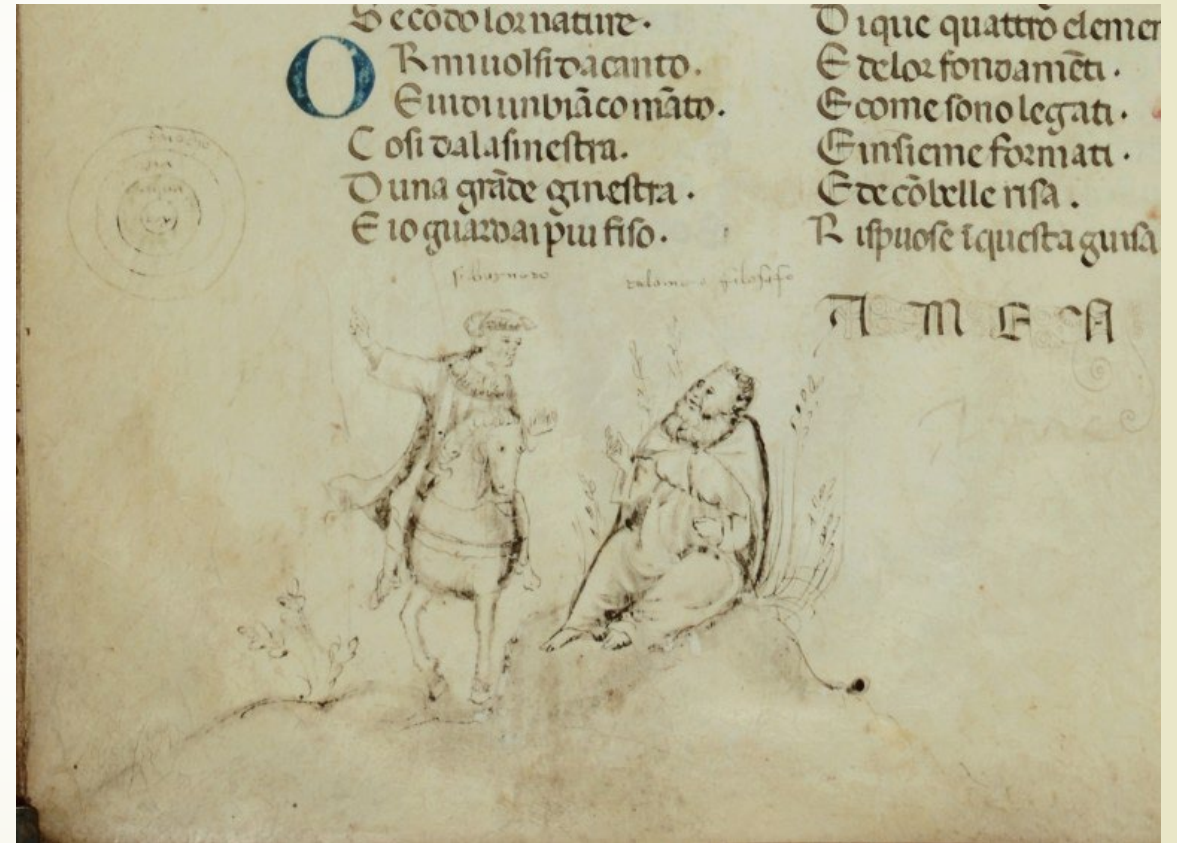 Secōdo lor nature ·
O Rmi uolsi da canto ·
E uidi un biāco māto ·
Cosi dala sinestra ·
D una grāde ginestra ·
E io guardai p̄iu fiso ·
D i que quattro elemen
E de lor fondamēti ·
E come sono legati ·
E insieme formati ·
E de cō belle risa .
R ispuose ī questa guisa
A M E N
filosafo